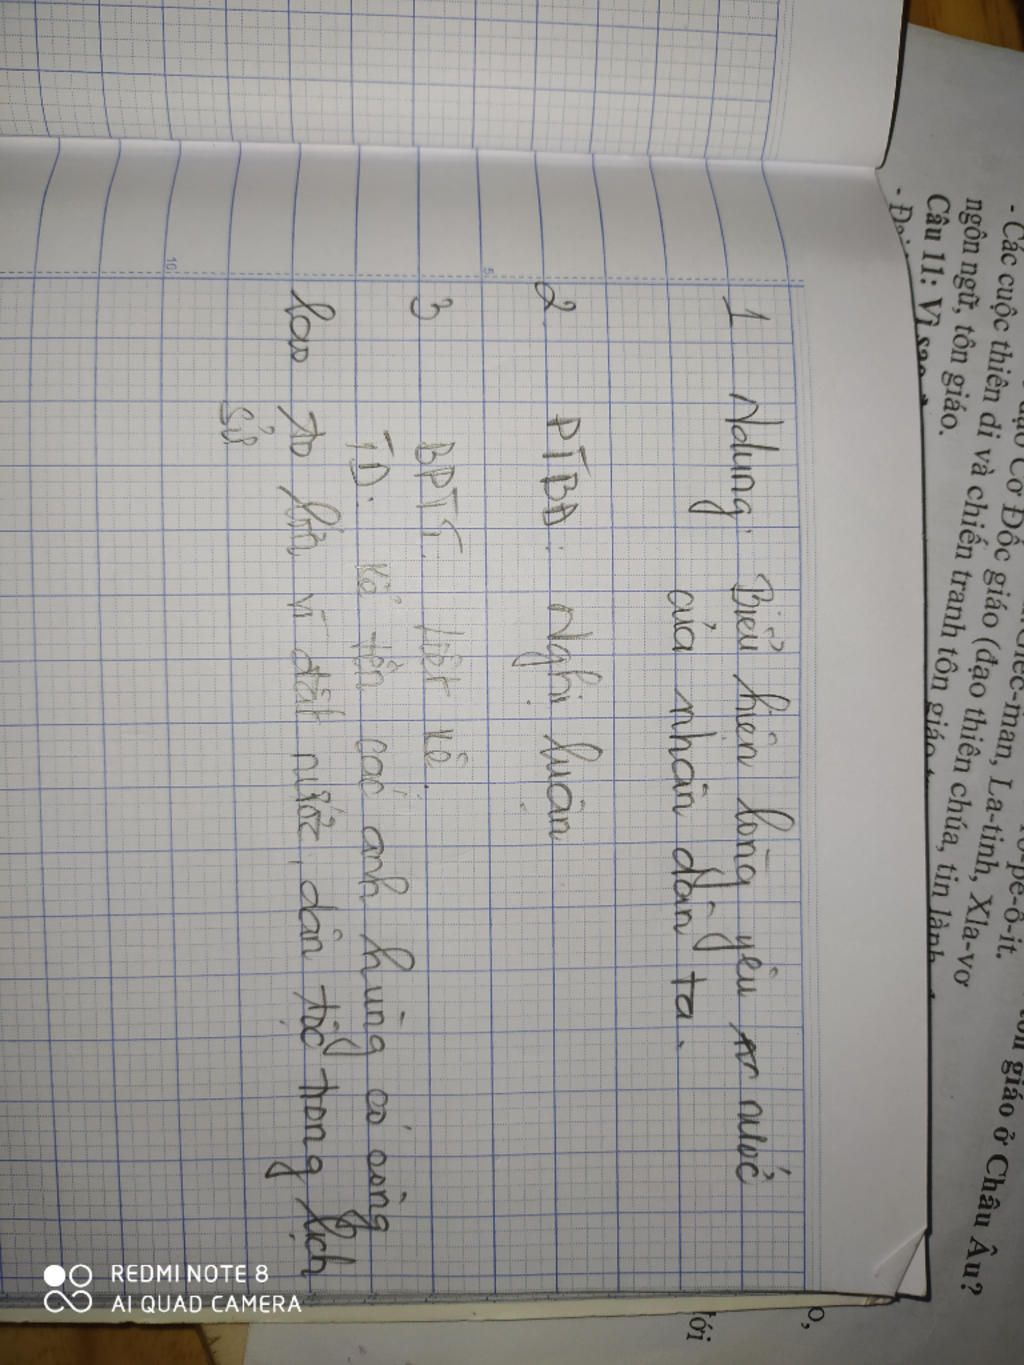 1 Ndung: Biểu hiện lòng yêu nước
của nhân dân ta.
2. PTBĐ: Nghị luận
3 BPTT: liệt kê.
TD: kể tên các anh hùng có công
lao to lớn vì đất nước, dân tộc trong lịch
sử
5
10
đạo Cơ Đốc giáo (đạo thiên chúa, tin lành
- Các cuộc thiên di và chiến tranh tôn giáo
ngôn ngữ, tôn giáo.
Câu 11: Vì sao
tôn giáo ở Châu Âu?
La-tinh, Xla-vơ
ô-it.
tới
REDMI NOTE 8
AI QUAD CAMERA